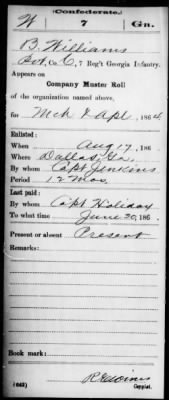 Confederate.
W 7 Ga.
B. Williams
Pvt, Co. C, 7 Reg't Georgia Infantry.
Appears on
Company Muster Roll
of the organization named above,
for Mch & Apl, 1864.
Enlisted:
When Aug 17, 186
Where Dallas, Ga.
By whom Capt Jenkins
Period 12 Mos.
Last paid:
By whom Capt Holiday
To what time June 30, 186 .
Present or absent Present
Remarks:
Book mark:
(642)
Copyist.